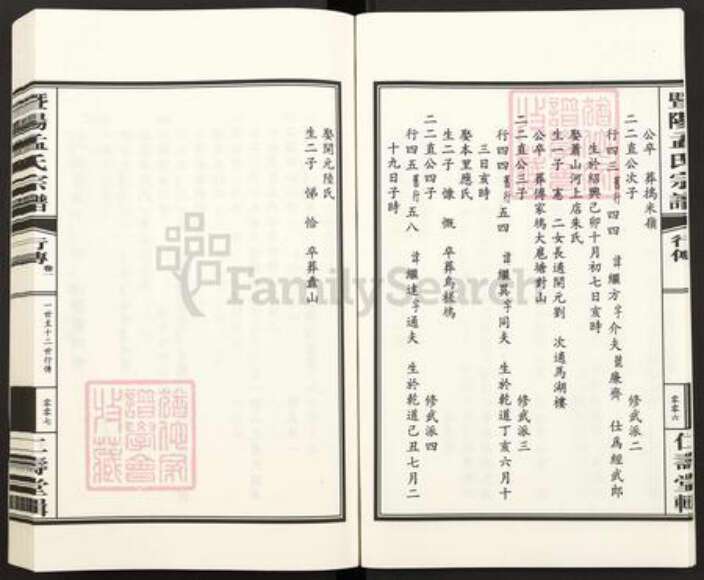 暨陽孟氏宗譜
行傳
零零六
仁壽堂輯
公卒 葬搗米嶺
二二直公次子 修武派二
行四三舊行四四 諱繼方字介夫號廉齋 仕爲經武郎
生於紹興己卯十月初七日亥時
娶蕭山河上店朱氏
生一子 憲 二女長適開元劉 次適馬湖樓
公卒 葬傅家塢大扈塘對山
二二直公三子 修武派三
行四四舊行五四 諱繼英字同夫 生於乾道丁亥六月十
三日亥時
娶本里應氏
生二子 慷 慨 卒葬烏桕塢
二二直公四子 修武派四
行四五舊行五八 諱繼達字通夫 生於乾道己丑七月二
十九日子時
娶開元陸氏
生二子 悌 恰 卒葬蠡山
暨陽孟氏宗譜
行傳 卷一
一世至十二世行傳
零零七
仁壽堂輯
FamilySearch